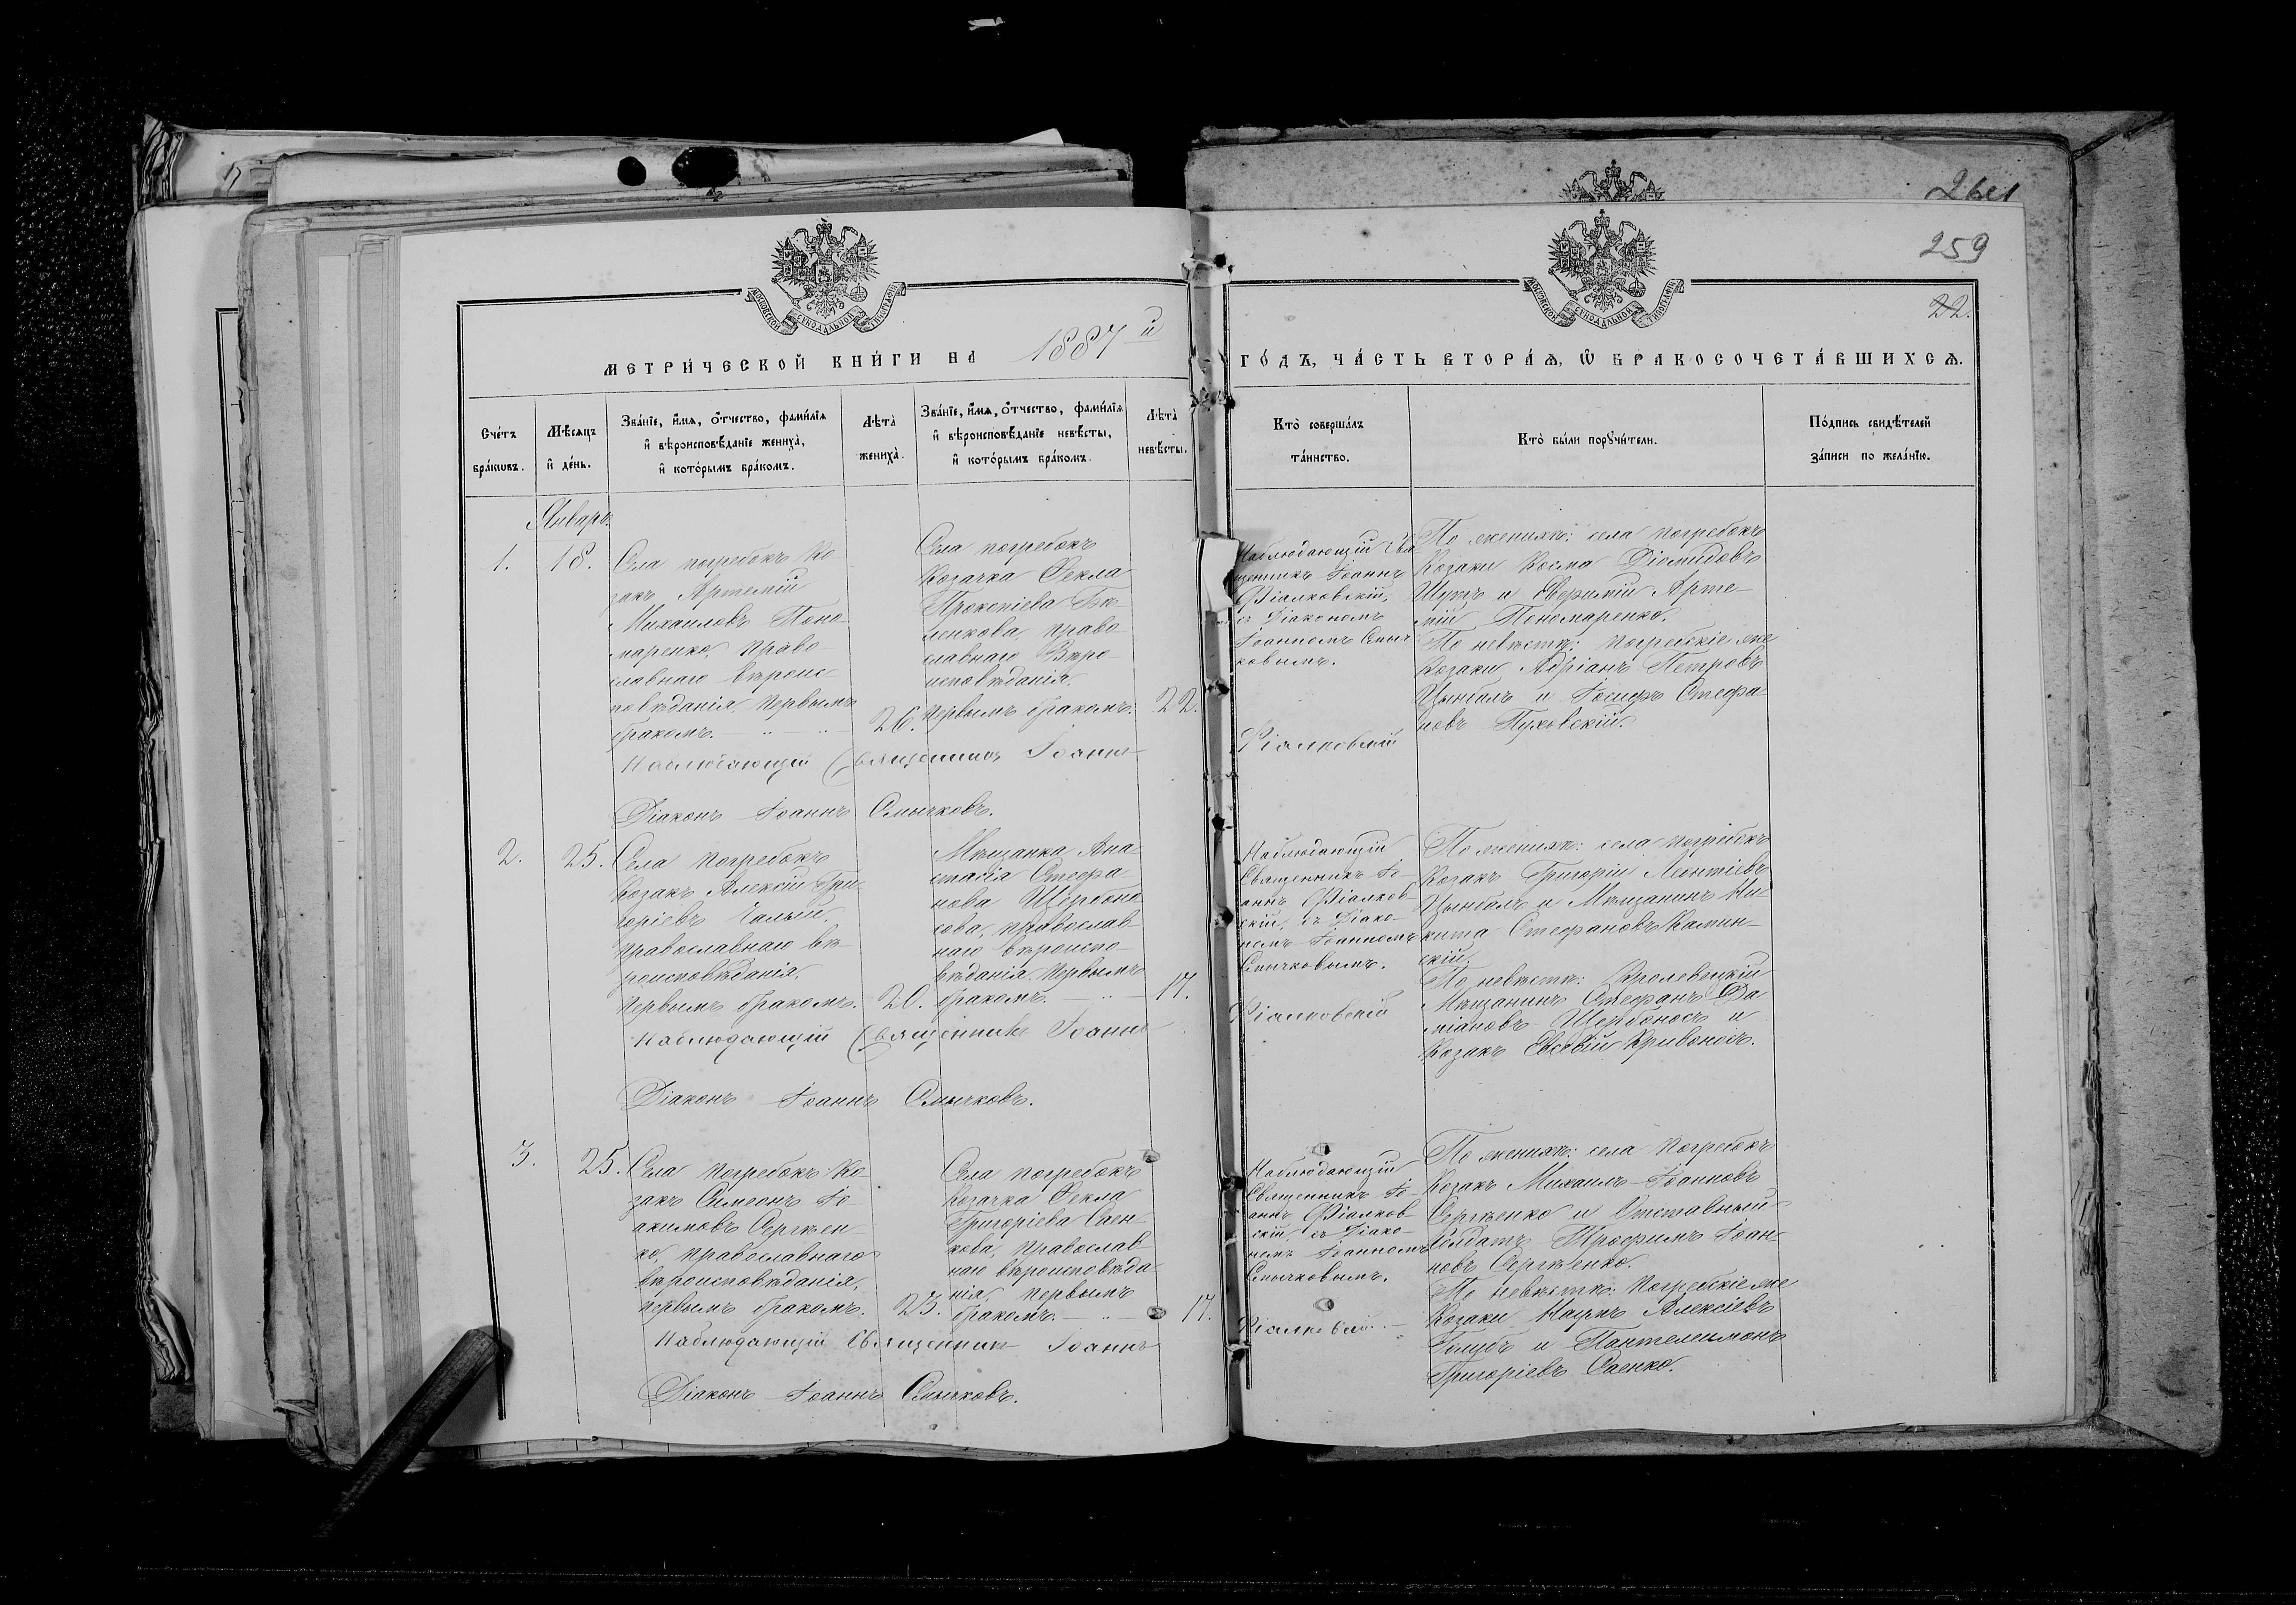 264
259
22.
МОСКОВСКОЙ СѴНОДАЛЬНОЙ ТИПОГРАФІИ
МОСКОВСКОЙ СѴНОДАЛЬНОЙ ТИПОГРАФІИ
МЕТРИ́ЧЕСКОЙ КНИ́ГИ НА 1887й
ГО́ДЪ, ЧА́СТЬ ВТОРА́Я, Ѡ БРАКОСОЧЕТА́ВШИХСЯ.
Сче́тъ
бра́кѡвъ.
Мѣ́сяцъ
и҆ де́нь.
Зва́нїе, и҆́мя, о҆́тчество, фами́лїя
и҆ вѣроисповѣ́данїе жениха̀,
и҆ кото́рымъ бра́комъ.
Лѣ́та̀
жениха̀.
Зва́нїе, и҆́мя, о҆́тчество, фами́лїя
и҆ вѣроисповѣ́данїе невѣ́сты,
и҆ кото́рымъ бра́комъ.
Лѣ́та̀
невѣ́сты.
Кто̀ соверша́лъ
та́инство.
Кто̀ бы́ли порꙋчи́тели.
По́дпись свидѣ́телей
за́писи по жела́нїю.
Январь.
1.
18.
Села погребокъ Ко-
закъ Артемій
Михаиловъ Поно-
маренко, право-
славнаго вѣроис-
повѣданія, первымъ
бракомъ.
26.
Села погребокъ
Козачка Ѳекла
Прокопіева
ленкова, право-
славнаго Вѣро-
исповѣданія,
первымъ бракомъ.
22.
Наблюдающій Свя-
щенникъ Іоаннъ
Фіалковскій,
съ Діакономъ
Іоанномъ Смыч-
ковымъ.
По женихѣ: села погребокъ
Козаки Косма Діомидовъ
Шутъ и Арте-
мій Пономаренко.
По невѣстѣ: погребскіе же
Козаки Адріанъ Петровъ
Цымбалъ и Іосифъ Стефа-
новъ Пуховскій.
Наблюдающій Священникъ Іоаннъ Фіалковскій
Діаконъ Іоаннъ Смычковъ.
2.
25.
Села погребокъ
Козакъ Алексій Гри-
горіевъ Галый,
православнаго вѣ-
роисповѣданія,
первымъ бракомъ.
20.
Мѣщанка Ана-
стасія Стефа-
нова Щербоно-
сова, православ-
наго вѣроиспо-
вѣданія, первымъ
бракомъ.
17.
Наблюдающій
Священникъ Іо-
аннъ Фіалков-
скій, съ Діако-
номъ Іоанномъ
Смычковымъ.
По женихѣ: села погребокъ
Козакъ Григорій Леонтіевъ
Цымбалъ и Мѣщанинъ Ни-
кита Стефановъ Камин-
скій.
По невѣстѣ: Кролевецкій
Мѣщанинъ Стефанъ Да-
міановъ Щербоносъ и
Козакъ Евсевій Кривоносъ.
Наблюдающій Священникъ Іоаннъ Фіалковскій
Діаконъ Іоаннъ Смычковъ.
3.
25.
Села погребокъ Ко-
закъ Симеонъ Іо-
акимовъ Сергѣен-
ко, православнаго
вѣроисповѣданія,
первымъ бракомъ.
23.
Села погребокъ
Козачка Ѳекла
Григоріева Саен-
кова, православ-
наго вѣроисповѣда-
нія, первымъ
бракомъ.
17.
Наблюдающій
Священникъ Іо-
аннъ Фіалков-
скій, съ Діако-
номъ Іоанномъ
Смычковымъ.
По женихѣ: села погребокъ
Козакъ Михаилъ Іоанновъ
Сергѣенко и Отставный
Солдатъ Трофимъ Іоан-
новъ Сергѣенко.
По невѣстѣ: погребскіе же
Козаки Наумъ Алексіевъ
Голубъ и Пантелеимонъ
Григоріевъ Саенко.
Наблюдающій Священникъ Іоаннъ Фіалковскій
Діаконъ Іоаннъ Смычковъ.